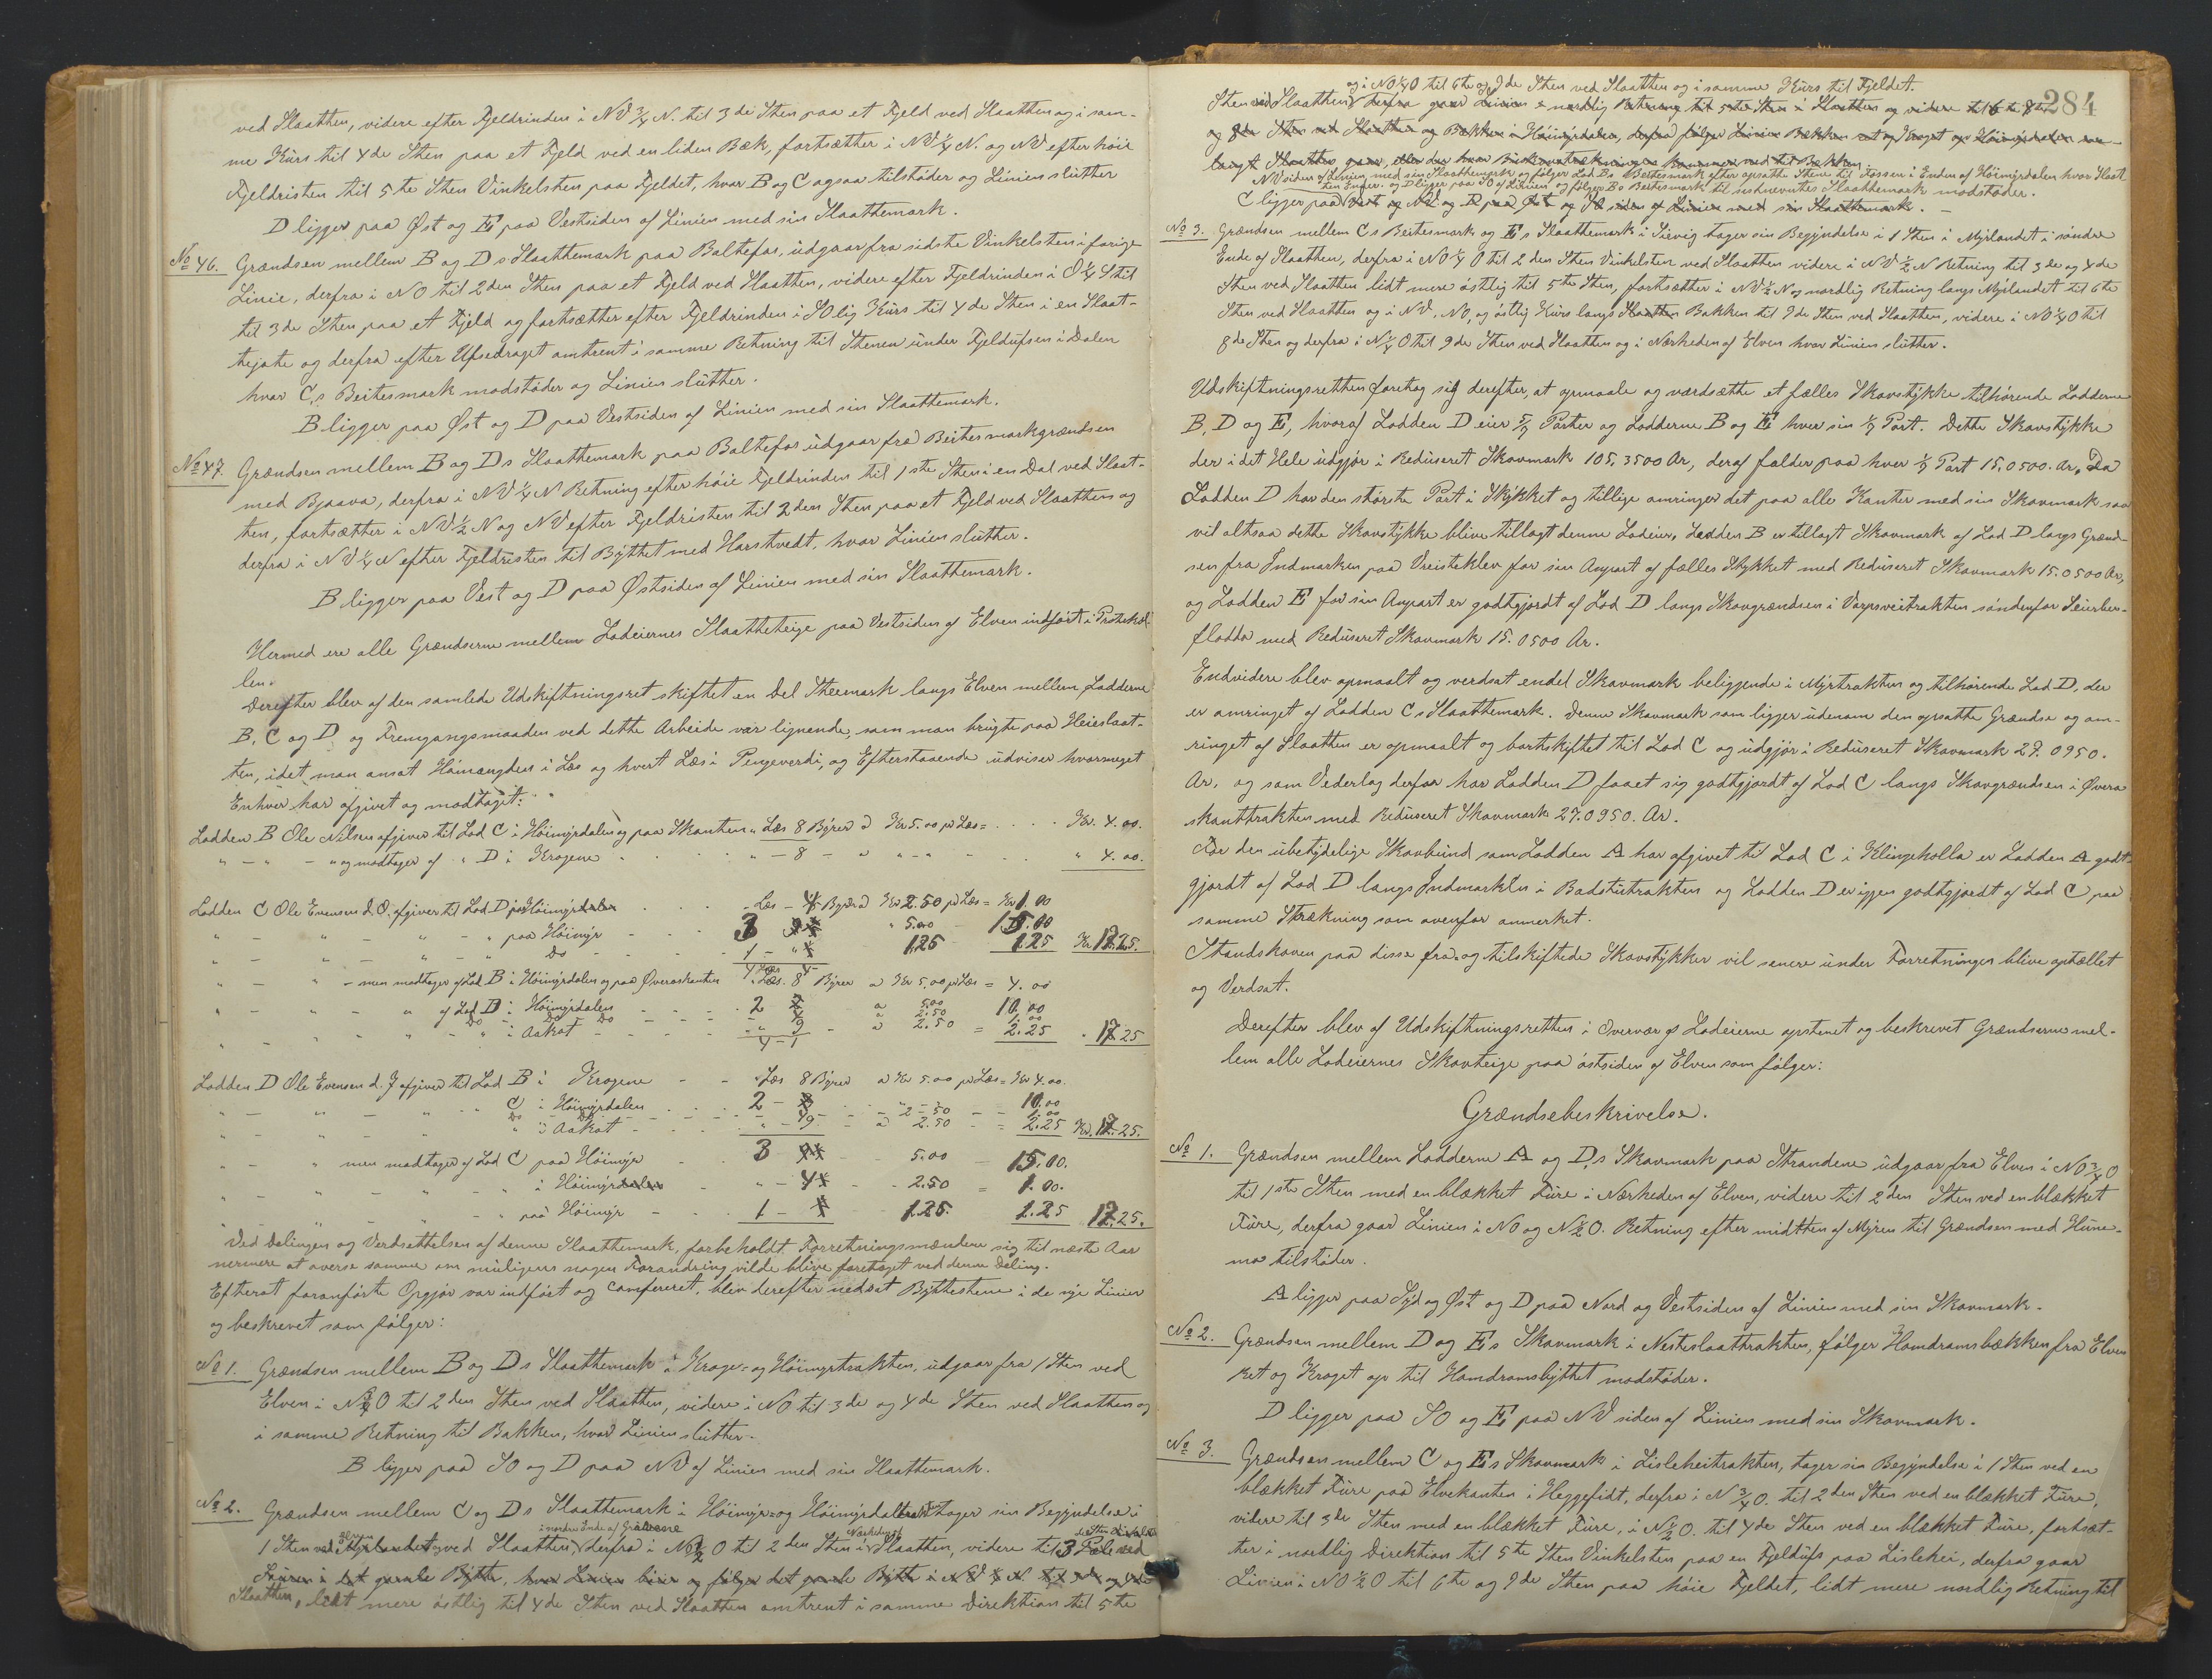 ved Slaatten, videre efter Fjeldrinden i NV 3/4 N. til 3de Sten paa et Fjeld ved Slaatten og i sam-
me Kurs til 4de Sten paa et Fjeld ved en liden Bæk, fortsætter i NV 1/4 N. og NV efter höie
Fjeldristen til 5te Sten Vinkelsten paa Fjeldet, hvor B og C ogsaa tilstöder og Linien slutter
D ligger paa Øst og E paa Vestsiden af Linien med sin Slaattemark.
No 46. Grændsen mellem B og Ds Slaattemark paa Baltefos, udgaar fra sidste Vinkelsten i forige
Linie, derfra i NO til 2den Sten paa et Fjeld ved Slaatten, videre efter Fjeldrinden i O 1/4 S til
til 3de Sten paa et Fjeld og fortsætter efter Fjeldrinden i SOlig Kurs til 4de Sten i en Slaat-
tejate og derfra efter Ufsedraget omtrent i samme Retning til Stenen under Fjeldufsen i Dalen
hvor C,s Beitesmark modstöder og Linien slutter.
B ligger paa Øst og D paa Vestsiden af Linien med sin Slaattemark.
No 47. Grændsen mellem B og Ds Slaattemark paa Baltefos udgaar fra Beitesmarkgrændsen
med Bjaava, derfra i NV 1/4 N Retning efter höie Fjeldrinden til 1ste Sten i en Dal ved Slaat-
ten, fortsætter i NV 1/2 N og NV efter Fjeldristen til 2den Sten paa et Fjeld ved Slaatten og
derfra i NV 1/4 N efter Fjeldristen til Byttet med Harstvedt, hvor Linien slutter.
B ligger paa Vest og D paa Østsiden af Linien med sin Slaattemark.
Hermed ere alle Grændserne mellem Lodeiernes Slaatteteige paa Vestsiden af Elven indfört i Protokol
len.
Derefter blev af den samlede Udskiftningsret skiftet en Del Steemark langs Elven mellem Lodderne
B, C og D og Fremgangsmaaden ved dette Arbeide var lignende, som man brugte paa Heieslaat-
ten, idet man ansat Hömængden i Læs og hvert Læs i Pengeverdi, og Efterstaaende udviser hvormeget
Enhver har afgivet og modtaget:
Lodden B Ole Nilsen afgiver til Lod C i Höimyrdalen og paa Skanten " Læs 8 Byrer a Kr 5.00 pr Læs = Kr. 4.00.
" - " - " og modtager af " D i Krogene " - 8 - " " - " " 4.00.
Lodden C Ole Evensen d.O. afgiver til Lod D paa Höimyrdalen . Læs - 4 Byrer a Kr 2.50 pr Læs = Kr 1.00
" - " - " - " paa Höimyr 3 " 5.00 - 15.00
" - " - " - " Do 1 - " 1.25 1.25 Kr. 17.25.
" - " - men modtager af Lod B i Höimyrdalen og paa Øveraskanten " Læs. 8 Byrer a Kr 5.00 pr Læs = 4.00
" - " - " af Lod D i Höimyrdalen 2 - a 5.00 10.00
Do - Do - Do a 2.50 1.00
" - " - " i Aakot " 9 a 2.50 = 2.25 . 17.25
4 - 1
Lodden D Ole Evensen d.J afgiver til Lod B i Krogene - Læs 8 Byrer a Kr 5.00 pr Læs = Kr 4.00.
" - " - " C i Höimyrdalen 2 - " - " - 10.00
Do - Do - 2 - 50 1.00
" - " - " i Aakot - " - 9 - a 2.50 = 2.25 Kr. 17.25.
" - " men modtager af Lod C paa Höimyr 3 5.00 15.00.
" - " - " i Höimyrdalen " - 4 - 2.50 = 1.00.
" - " - " paa Höimyr 1 - 1.25. 1.25 17.25.
Ved Delingen og Verdsættelsen af denne Slaattemark, forbeholdt Forretningsmændene sig til næste Aar
nermere at overse samme om muligens nogen Forandring vilde blive foretaget ved denne Deling.
Efterat foranförte Opgjör var indfört og confereret, blev derefter nedsat Byttestene i de nye Linier
og beskrevet som fölger:
No 1. Grændsen mellem B og Ds Slaattemark i Kroge- og Höimyrtrakten, udgaar fra 1 Sten ved
Elven i N O til 2den Sten ved Slaatten, videre i NO til 3de og 4de Sten ved Slaatten og
i samme Retning til Bakken, hvor Linien slutter.
B ligger paa SO og D paa NV af Linien med sin Slaattemark.
No 2. Grændsen mellem C og Ds Slaattemark i Höimyr- og Höimyrdaltrakt tager sin Begyndelse i
1 Sten ved Elven ved Slaatten, i nordre Ende af Gravene derfra i N 1/2 O til 2den Sten i Nærheden af Slaatten, videre til 3
Furen i det gamle Bytte, hvor Linien böier og fölger det gamle Bytte i NV 1/4 N. til 3de og 4de
Slaatten, lidt mere östlig til 4de Sten ved Slaatten omtrent i samme Direktion til 5te
284
og i NO 1/4 O til 6te og 7de Sten ved Slaatten og i samme Kurs til Fjeldet.
Sten ved Slaatten derfra gaar Linien i nordlig Retning til 5te Sten i Slaatten og videre til 6te 7de
og 8de Sten ved Slaatten og Bækken i Höimyrdalen, derfra fölger Linien Bækken ret og Kroget op Höimyrdalen saa
langt Slaatten gaar, eller der hvor Birkestrækningen kommer ned til Bækken.
NV siden af Linien med sin Slaattemark og fölger Lod Bs Beitesmark efter opsatte Stene til Fossen i Enden af Höimyrdalen hvor Slaat-
ten Ender. og D ligger paa SO af Linien og fölger Bs Beitesmark til istnevnte Slaattemark modstöder.
C ligger paa Vest og NV. og D paa Øst og SO siden af Linien med sin Slaattemark. -
No 3. Grændsen mellem Cs Beitesmark og Es Slaattemark i Sievig tager sin Begyndelse i 1 Sten i Myrlandet i söndre
Ende af Slaatten, derfra i NO 1/4 O til 2den Sten Vinkelsten ved Slaatten videre i NV 1/2 N Retning til 3de og 4de
Sten ved Slaatten lidt mere östlig til 5te Sten, fortsætter i NV 1/2 N og nordlig Retning langs Myrlandet til 6te
Sten ved Slaatten og i NV, NO, og östlig Kurs langs Slaatten Bakken til 7de Sten ved Slaatten, videre i NO 1/4 O til
8de Sten og derfra i N 1/4 O til 9de Sten ved Slaatten og i Nærheden af Elven hvor Linien slutter.
Udskiftningsretten foretog sig derefter, at opmaale og værdsætte et fælles Skovstykke tilhörende Lodderne
B, D og E, hvoraf Lodden D eier 5/7 Parter og Lodderne B og E hver sin 1/7 Part. Dette Skovstykke
der i det Hele udgjör i Reduseret Skovmark 105,3500 Ar, deraf falder paa hver 1/7 Part 15,0500. Ar. Da
Lodden D har den störste Part i Stykket og tillige omringer det paa alle Kanter med sin Skovmark saa
vil altsaa dette Skovstykke blive tillagt denne Lodeier. Lodden B er tillagt Skovmark af Lod D langs Grænd-
sen fra Indmarken paa Vreisteklev for sin Anpart af fælles Stykket med Reduseret Skovmark 15.0500 Ar,
og Lodden E for sin Anpart er godtgjordt af Lod D langs Skovgrændsen i Varpsveitrakten söndenfor Seurber-
flodda med Reduseret Skovmark 15.0500 Ar.
Endvidere blev opmaalt og verdsat endel Skovmark beliggende i Myrtrakten og tilhörende Lod D, der
er omringet af Lodden Cs Slaattemark. Denne Skovmark som ligger udenom den opsatte Grændse og om-
ringet af Slaatten er opmaalt og bortskiftet til Lod C og udgjör i Reduseret Skovmark 27.0950.
Ar, og som Vederlag derfor har Lodden D faaet sig godtgjordt af Lod C langs Skovgrændsen i Øvera
skanttrakten med Reduseret Skovmark 27.0950. Ar.
For den ubetydelige Skovbund som Lodden A har afgivet til Lod C i Klingeholla er Lodden A godt-
gjordt af Lod D langs Indmarken i Badstutrakten og Lodden D er igjen godtgjordt af Lod C paa
samme Strækning som ovenfor anmerket.
Standskoven paa disse fra- og tilskiftede Skovstykker vil senere under Forretningen blive optællet
og Verdsat.
Derefter blev af Udskiftningsretten i Overvær af Lodeierne opstenet og beskrevet Grændserne mel-
lem alle Lodeiernes Skovteige paa östsiden af Elven som fölger:
Grændsebeskrivelse.
No 1. Grændsen mellem Lodderne A og D,s Skovmark paa Strandene udgaar fra Elven i NO 3/4 O
til 1ste Sten med en blækket Fure i Nærheden af Elven, videre til 2den Sten ved en blækket
Fure, derfra gaar Linien i NO og N 1/2 O. Retning efter midtten af Myren til Grændsen med Hune-
mo tilstöder.
A ligger paa Syd og Øst og D paa Nord og Vestsiden af Linien med sin Skovmark.
No 2. Grændsen mellem D og Es Skovmark i Nesteslaattrakten, fölger Homdramsbækken fra Elven
Ret og Kroget op til Homdramsbyttet modstöder.
D ligger paa SO og E paa NV siden af Linien med sin Skovmark.
No 3. Grændsen mellem C og Es Skovmark i Lisleheitrakten, tager sin Begyndelse i 1 Sten ved en
blækket Fure paa Elvekanten i Heggefidt, derfra i N 3/4 O. til 2den Sten ved en blækket Fure,
videre til 3de Sten med en blækket Fure, i N 1/2 O. til 4de Sten ved en blækket Fure, fortsæt-
ter i nordlig Direktion til 5te Sten Vinkelsten paa en Fjeldufs paa Lislehei, derfra gaar
Linien i NO 1/2 O til 6te og 7de Sten paa höie Fjeldet, lidt mere nordlig Retning til